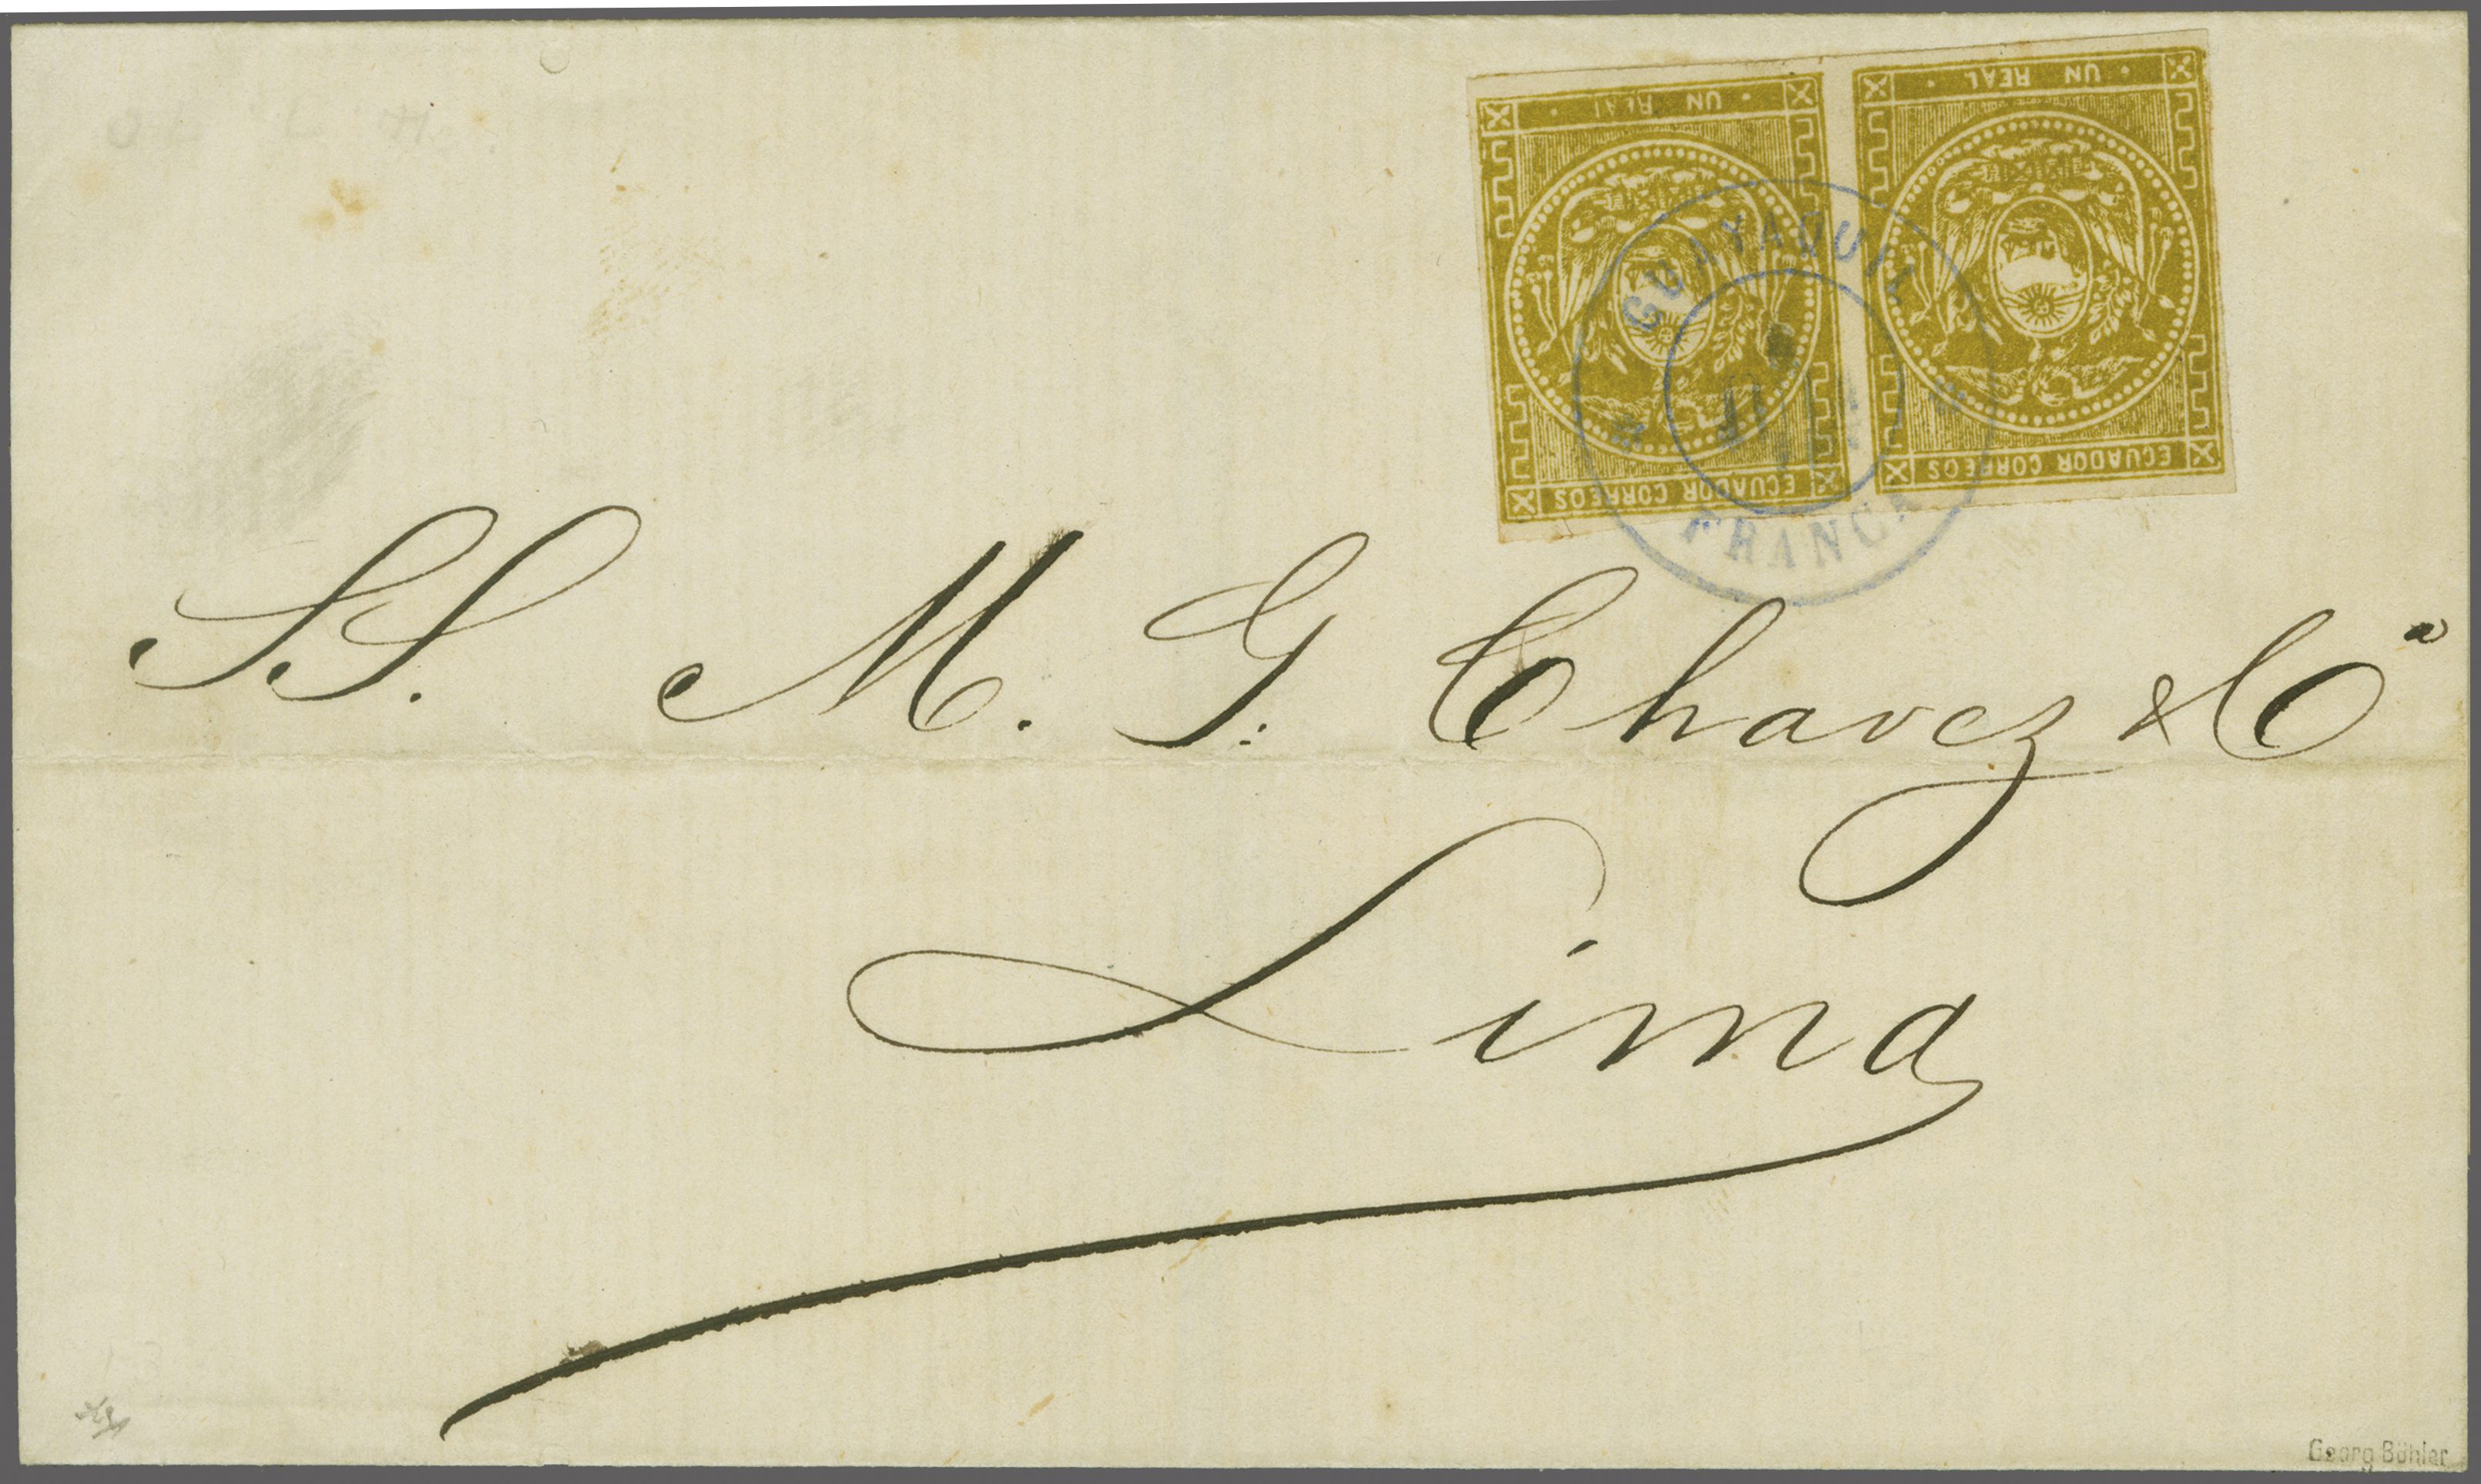 · UN REAL ·
· UN REAL ·
ECUADOR CORREOS
ECUADOR CORREOS
GUAYAQUIL
FRANCA
SS. M. G. Chavez & Cª
Lima
Georg Bühler